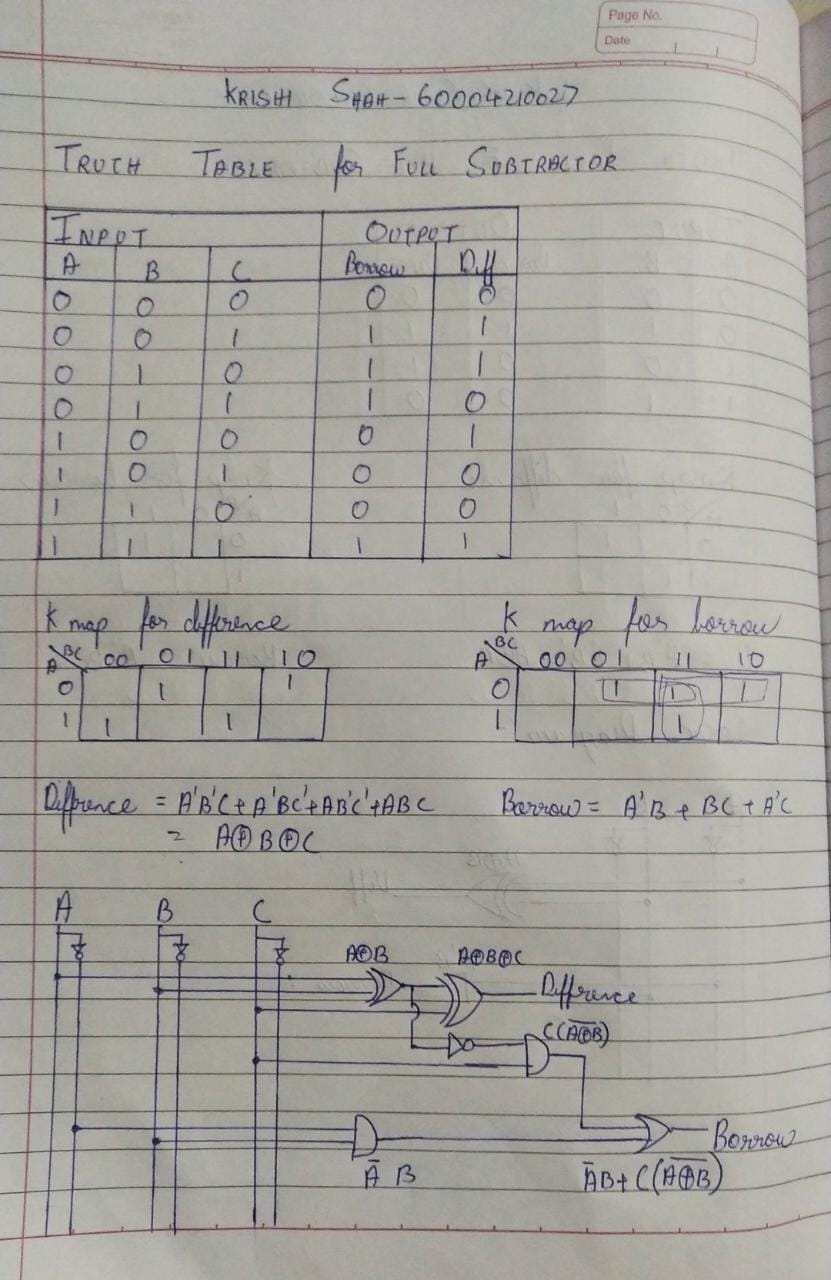 Page No.
Date
KRISHI SHAH - 60004210027
TRUTH TABLE for FULL SUBTRACTOR
INPUT OUTPUT
A B C Borrow Diff
0 0 0 0 0
0 0 1 1 1
0 1 0 1 1
0 1 1 1 0
1 0 0 0 1
1 0 1 0 0
1 1 0 0 0
1 1 1 1 1
K map for difference
A BC 00 01 11 10
0 1 1
1 1 1
K map for borrow
A BC 00 01 11 10
0 1 1 1
1 1
Diffrence = A'B'C + A'BC' + AB'C' + ABC
= A⊕B⊕C
Borrow = A'B + BC + A'C
A B C
A⊕B A⊕B⊕C
Diffrence
C(A̅⊕̅B̅)
Borrow
A̅ B
A̅B + C(A̅⊕̅B̅)